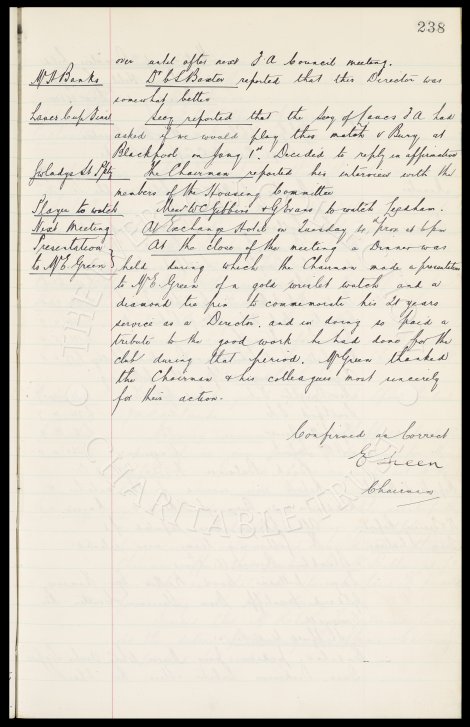 238
over until after next F A Council meeting.
Mr A Banks Dr C S Baxter reported that this Director was
somewhat better
Lancs Cup Final Secy reported that the Secy of Lancs F A had
asked if we would play this match v Bury, at
Blackpool on Jany 1st. Decided to reply in affirmative
Gwladys St Ppty The Chairman reported his interview with the
members of the Housing Committee
Player to watch Messrs W C Gibbins & G Evans to watch
Next Meeting At Exchange Hotel on Tuesday 4, prox at 6pm
Presentation At the close of the meeting a Dinner was
to Mr E. Green held during which the Chairman made a presentation
to Mr E. Green of a gold wristlet watch and a
diamond tie pin to commemorate his 21 years
service as a Director, and in doing so paid a
tribute to the good work he had done for the
club during that period. Mr Green thanked
the Chairman & his colleagues most sincerely
for their action.
Confirmed as Correct
E Green
Chairman
CHARITABLE